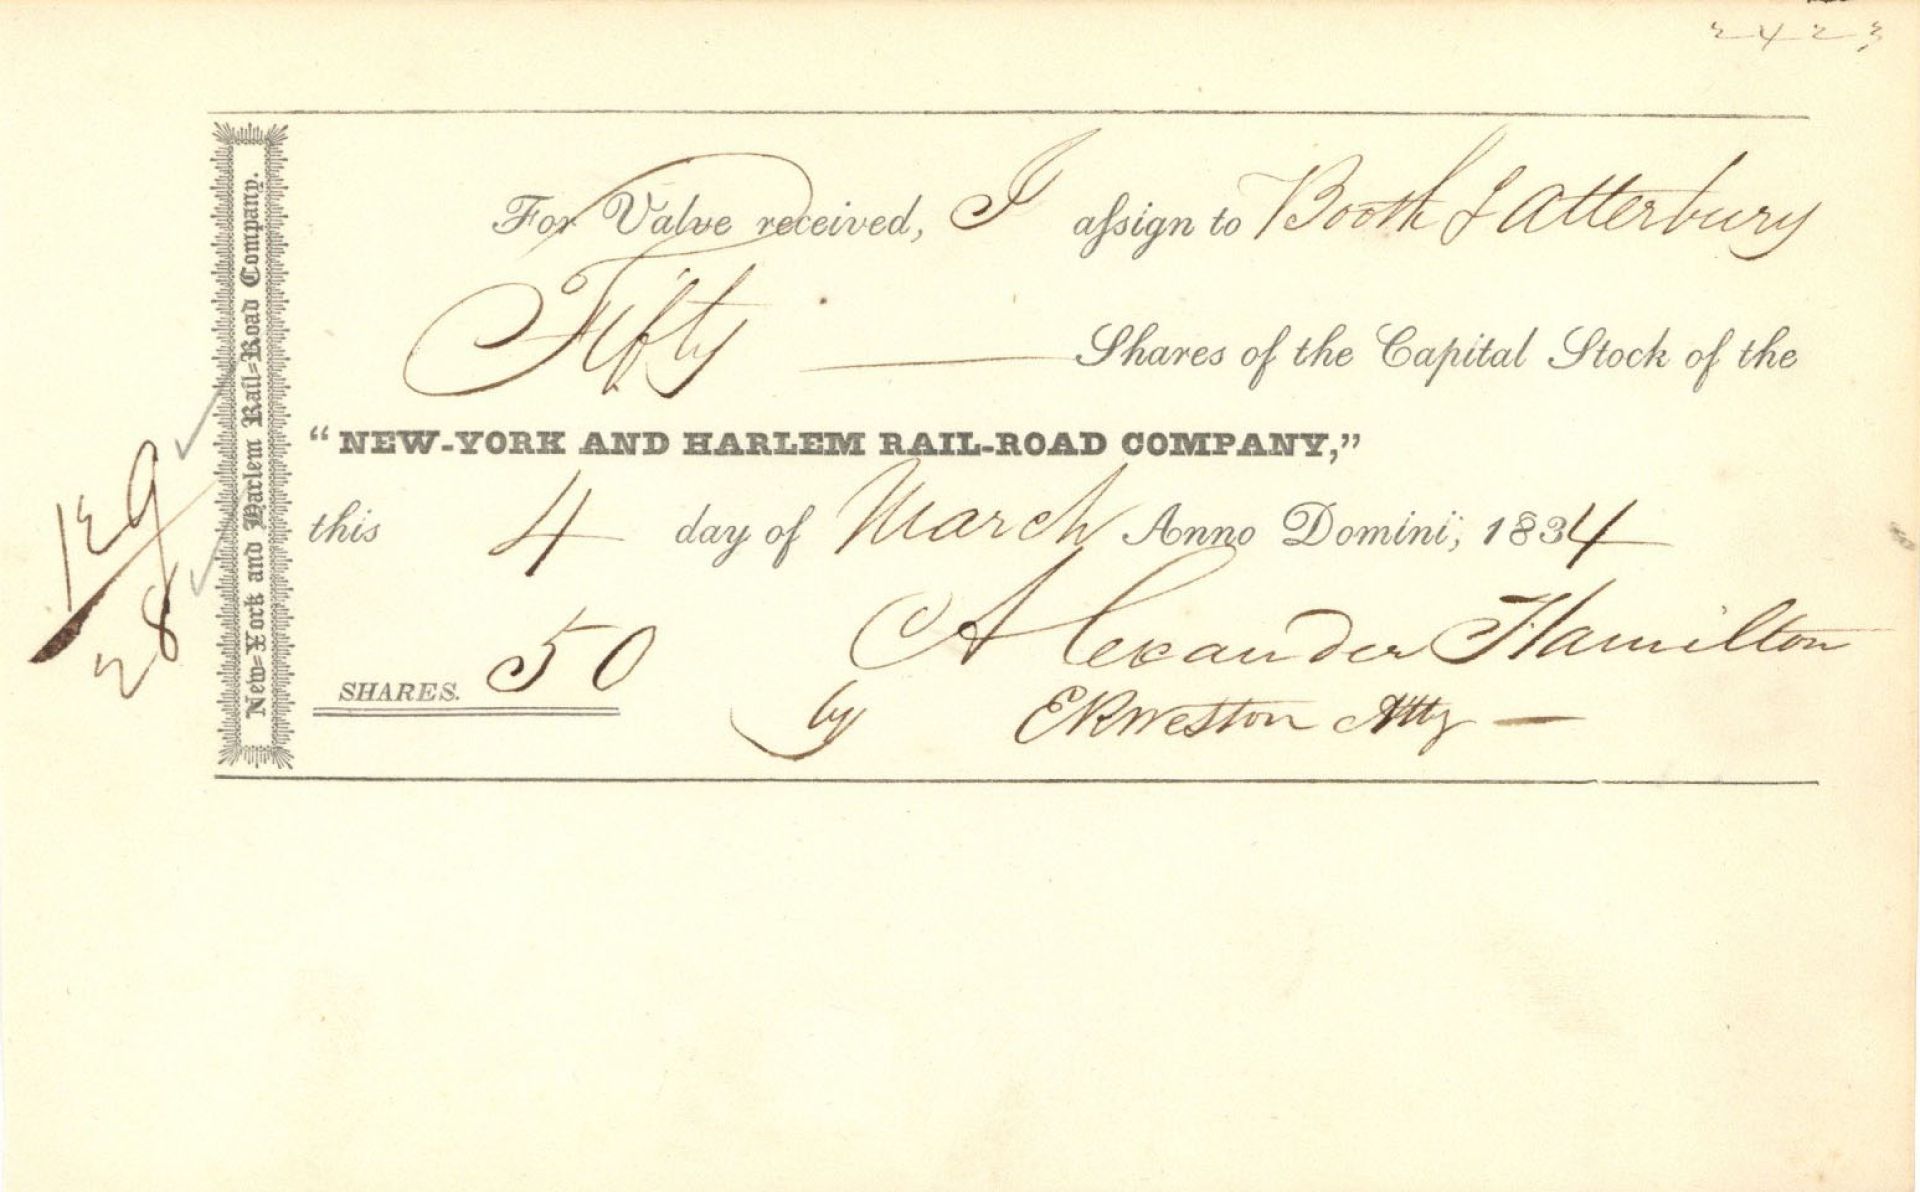 2423
New-York and Harlem Rail-Road Company.
For Value received, I aſsign to Booth & Atterbury
Fifty — Shares of the Capital Stock of the
"NEW-YORK AND HARLEM RAIL-ROAD COMPANY,"
this 4 day of March Anno Domini, 1834
129
28
SHARES. 50 Alexander Hamilton
by EKWeston Atty —